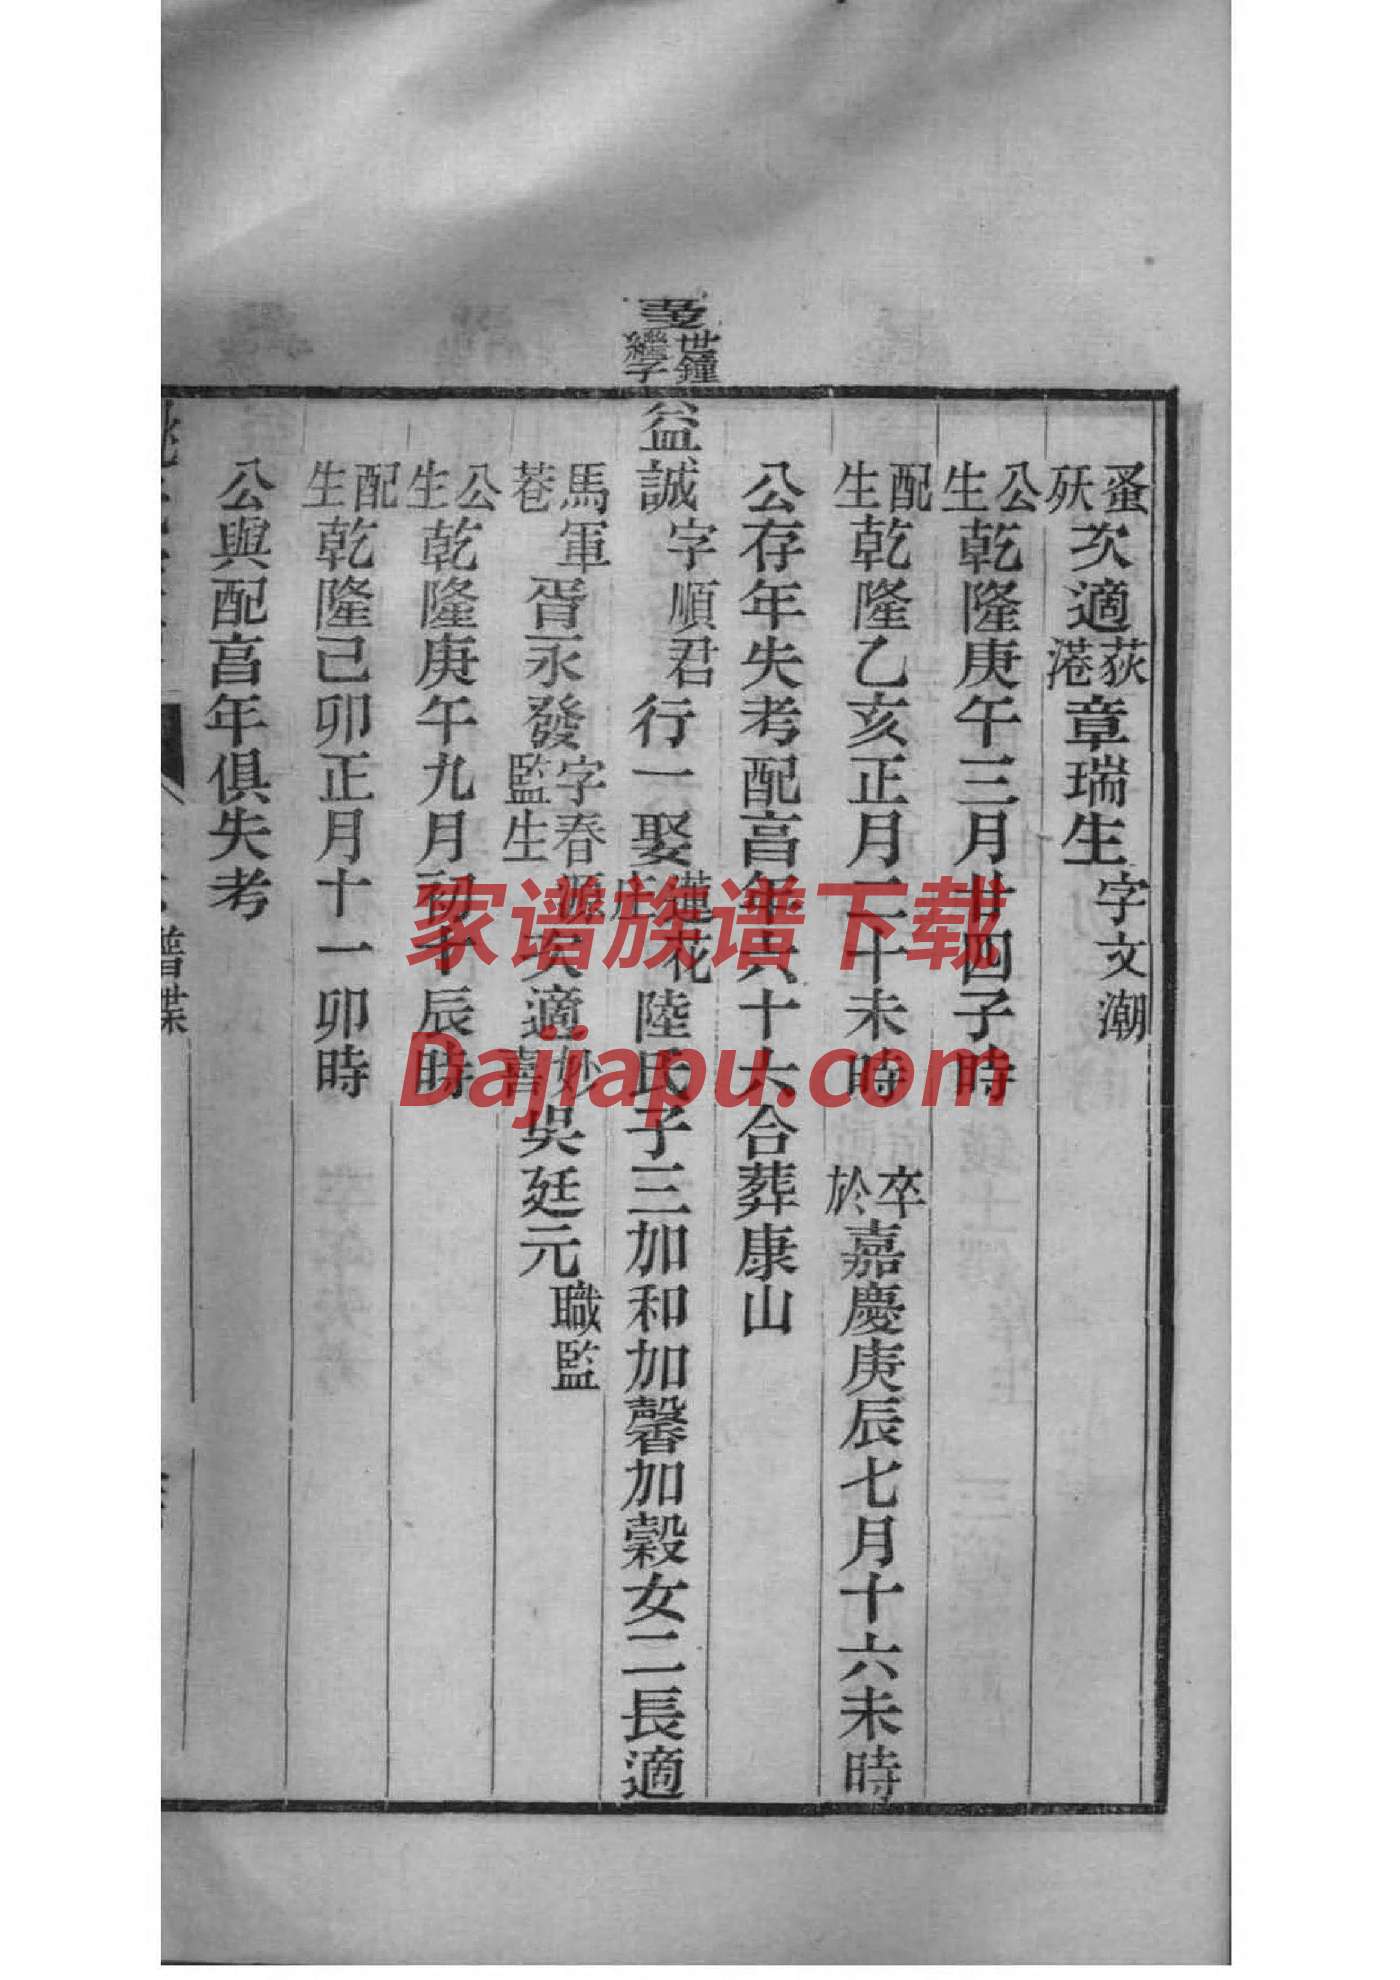 蚤殀次適荻港章瑞生字文潮
公生乾隆庚午三月廿四子時
配生乾隆乙亥正月二十未時 卒於嘉慶庚辰七月十六未時
公存年失考配亯年六十六合葬康山
世鐘繼子
益誠字順君行一娶蓮花庄陸氏子三加和加馨加穀女二長適
馬軍巷胥永發字春源監生次適妙喜吳廷元職監
公生乾隆庚午九月初十辰時
配生乾隆己卯正月十一卯時
公與配亯年俱失考
譜牒
家谱族谱下载
Dajiapu.com